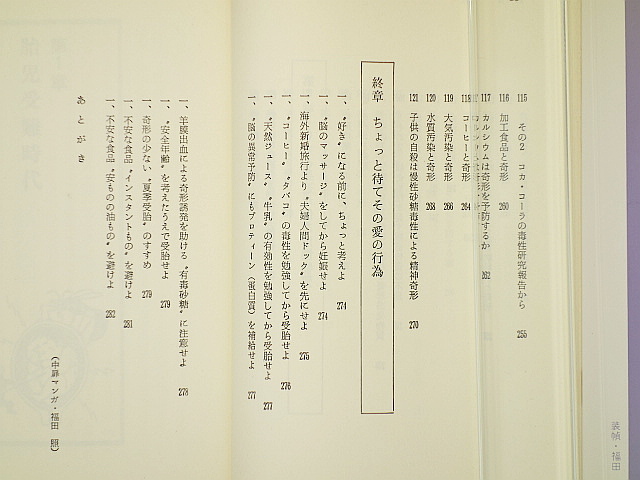 115 その2 コカ・コーラの毒性研究報告から 255
116 加工食品と奇形 260
117 カルシウムは奇形を予防するか 262
118 コーヒーと奇形 264
119 大気汚染と奇形 266
120 水質汚染と奇形 268
121 子供の自殺は慢性砂糖毒性による精神奇形 270
終章 ちょっと待てその愛の行為
一、〝好き〟になる前に、ちょっと考えよ 274
一、〝脳のマッサージ〟をしてから妊娠せよ 274
一、海外新婚旅行より〝夫婦人間ドック〟を先にせよ 275
一、〝コーヒー〟〝タバコ〟の毒性を勉強してから受胎せよ 276
一、〝天然ジュース〟〝牛乳〟の有効性を勉強してから受胎せよ 277
一、〝脳の異常予防〟にもプロティーン（蛋白質）を補給せよ 277
一、羊膜出血による奇形誘発を助ける〝有毒砂糖〟に注意せよ 278
一、〝安全年齢〟を考えたうえで受胎せよ 279
一、奇形の少ない〝夏季受胎〟のすすめ 279
一、不安な食品〝インスタントもの〟を避けよ 281
一、不安な食品〝安ものの油もの〟を避けよ 282
あとがき
（中扉マンガ・福田 照）
装幀・福田